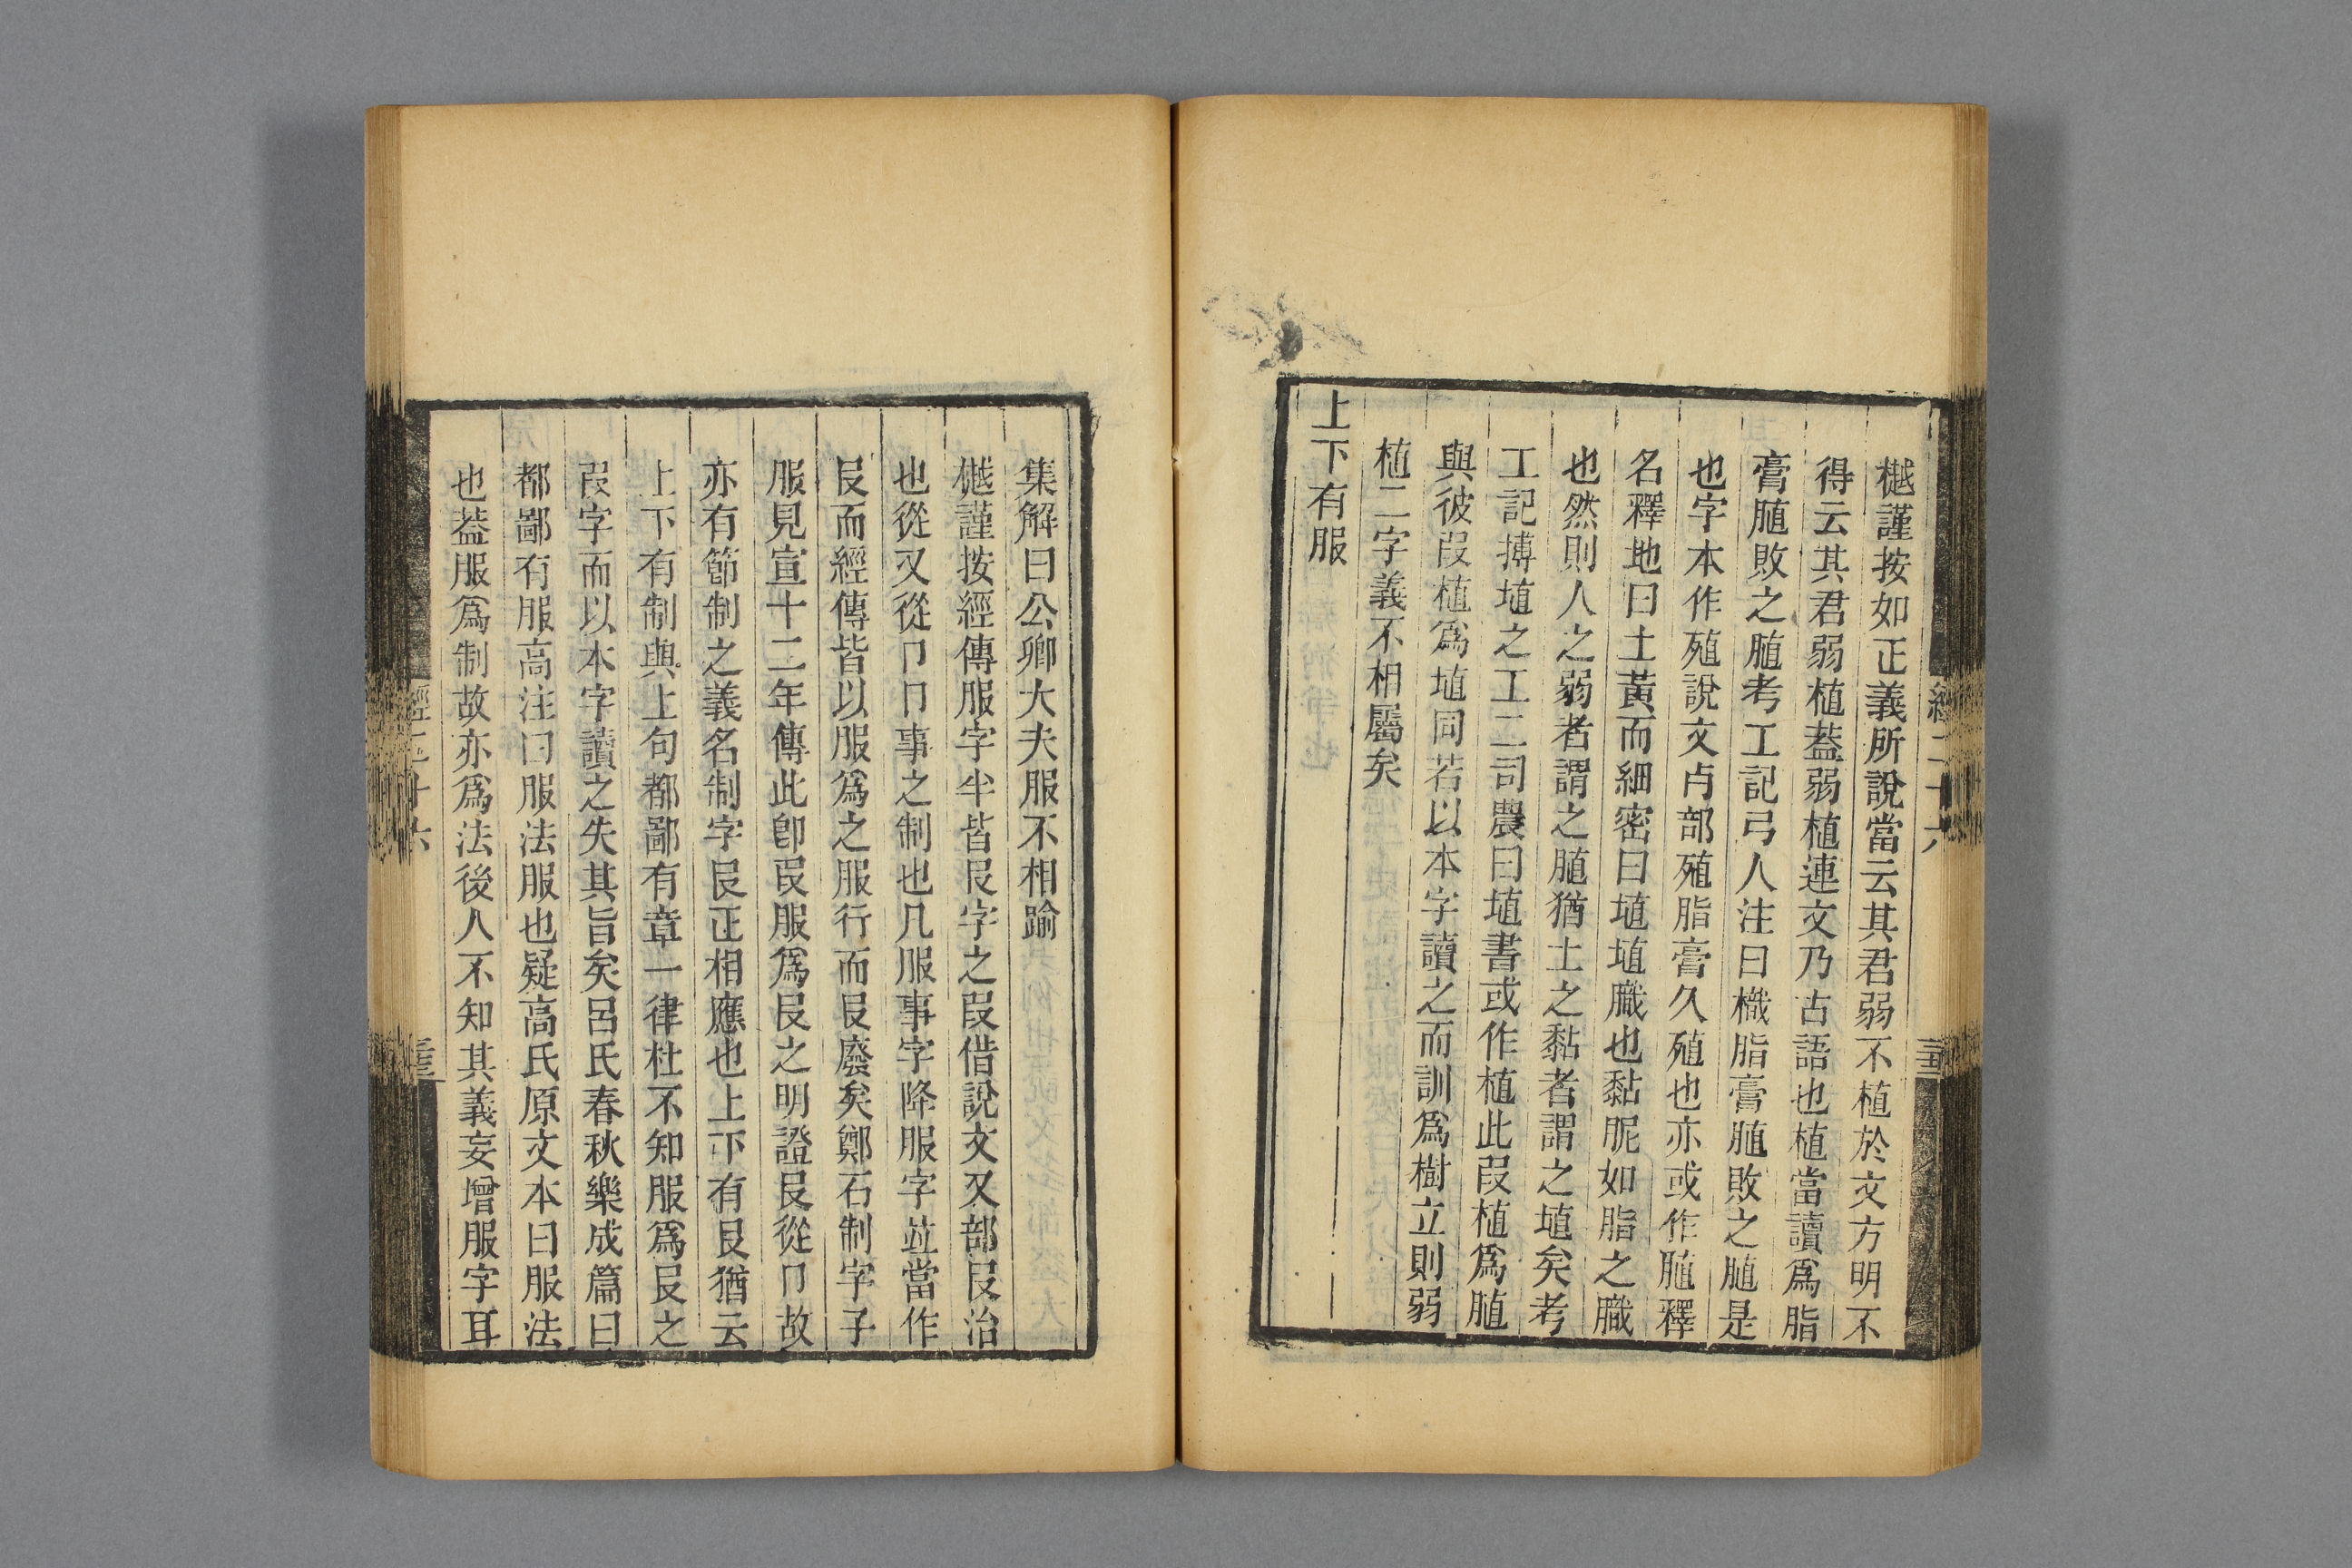 樾謹按如正義所說當云其君弱不植於文方明不
得云其君弱植葢弱植連文乃古語也植當讀爲脂
膏䐈敗之䐈考工記弓人注曰樴脂膏䐈敗之䐈是
也字本作殖說文歺部殖脂膏久殖也亦或作䐈釋
名釋地曰土黃而細密曰埴埴膱也黏胒如脂之膱
也然則人之弱者謂之䐈猶土之黏者謂之埴矣考
工記搏埴之工二司農曰埴書或作植此叚植爲䐈
與彼叚植爲埴同若以本字讀之而訓爲樹立則弱
植二字義不相屬矣
上下有服
集解曰公卿大夫服不相踰
樾謹按經傳服字半皆𠬝字之叚借說文又部𠬝治
也從又從卩卩事之制也凡服事字降服字竝當作
𠬝而經傳皆以服爲之服行而𠬝廢矣鄭石制字子
服見宣十二年傳此卽叚服爲𠬝之明證𠬝從卩故
亦有節制之義名制字𠬝正相應也上下有𠬝猶云
上下有制與上句都鄙有章一律杜不知服爲𠬝之
叚字而以本字讀之失其旨矣呂氏春秋樂成篇曰
都鄙有服高注曰服法服也疑高氏原文本曰服法
也葢服爲制故亦爲法後人不知其義妄增服字耳